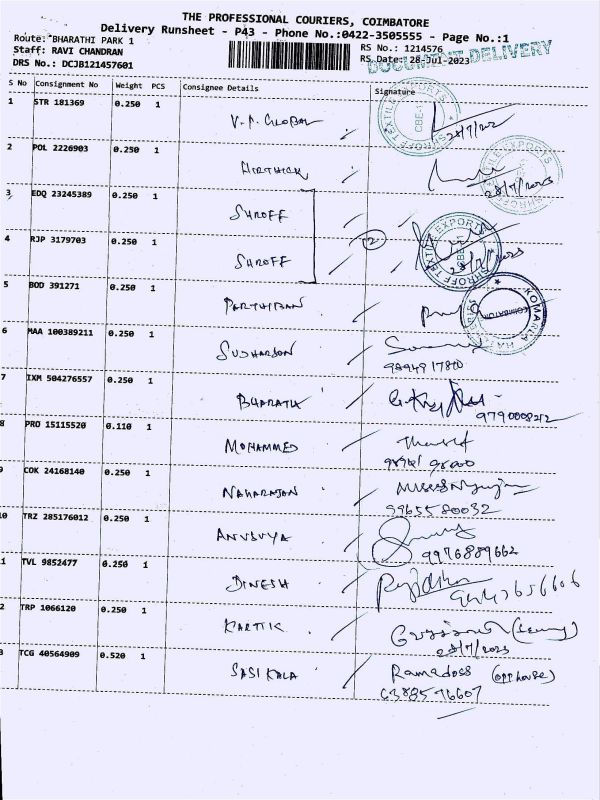 THE PROFESSIONAL COURIERS, COIMBATORE
Delivery Runsheet - P43 - Phone No.:0422-3505555 - Page No.:1
Route: BHARATHI PARK 1
RS No.: 1214576
Staff: RAVI CHANDRAN
RS Date: 28-Jul-2023
DOCUMENT DELIVERY
DRS No.: DCJB121457601
S No Consignment No Weight PCS Consignee Details Signature
1 STR 181369 0.250 1 V.P. GLOBAL
SHROFF TEXTILE EXPORTS CBE-1
2 POL 2226903 0.250 1 HIRTHICK
28/7/2023
3 EDQ 23245389 0.250 1 SHROFF
4 RJP 3179703 0.250 1 SHROFF 2
SHROFF TEXTILE EXPORTS CBE-1
28/7/2023
5 BOD 391271 0.250 1 PARTHIBAN
COIMBATORE
6 MAA 100389211 0.250 1 SUDHARSON
7 IXM 504276557 0.250 1 BHARATH
8 PRO 15115520 0.110 1 MOHAMMED
9 COK 24168140 0.250 1 NAHARAJAN
9965580032
0 TRZ 285176012 0.250 1 ANUSUYA
9976889662
1 TVL 9852477 0.250 1 DINESH
2 TRP 1066120 0.250 1 KARTIK
28/7/2023
3 TCG 40564909 0.520 1 SASIKALA Ramadoss (opp house)
6388576607